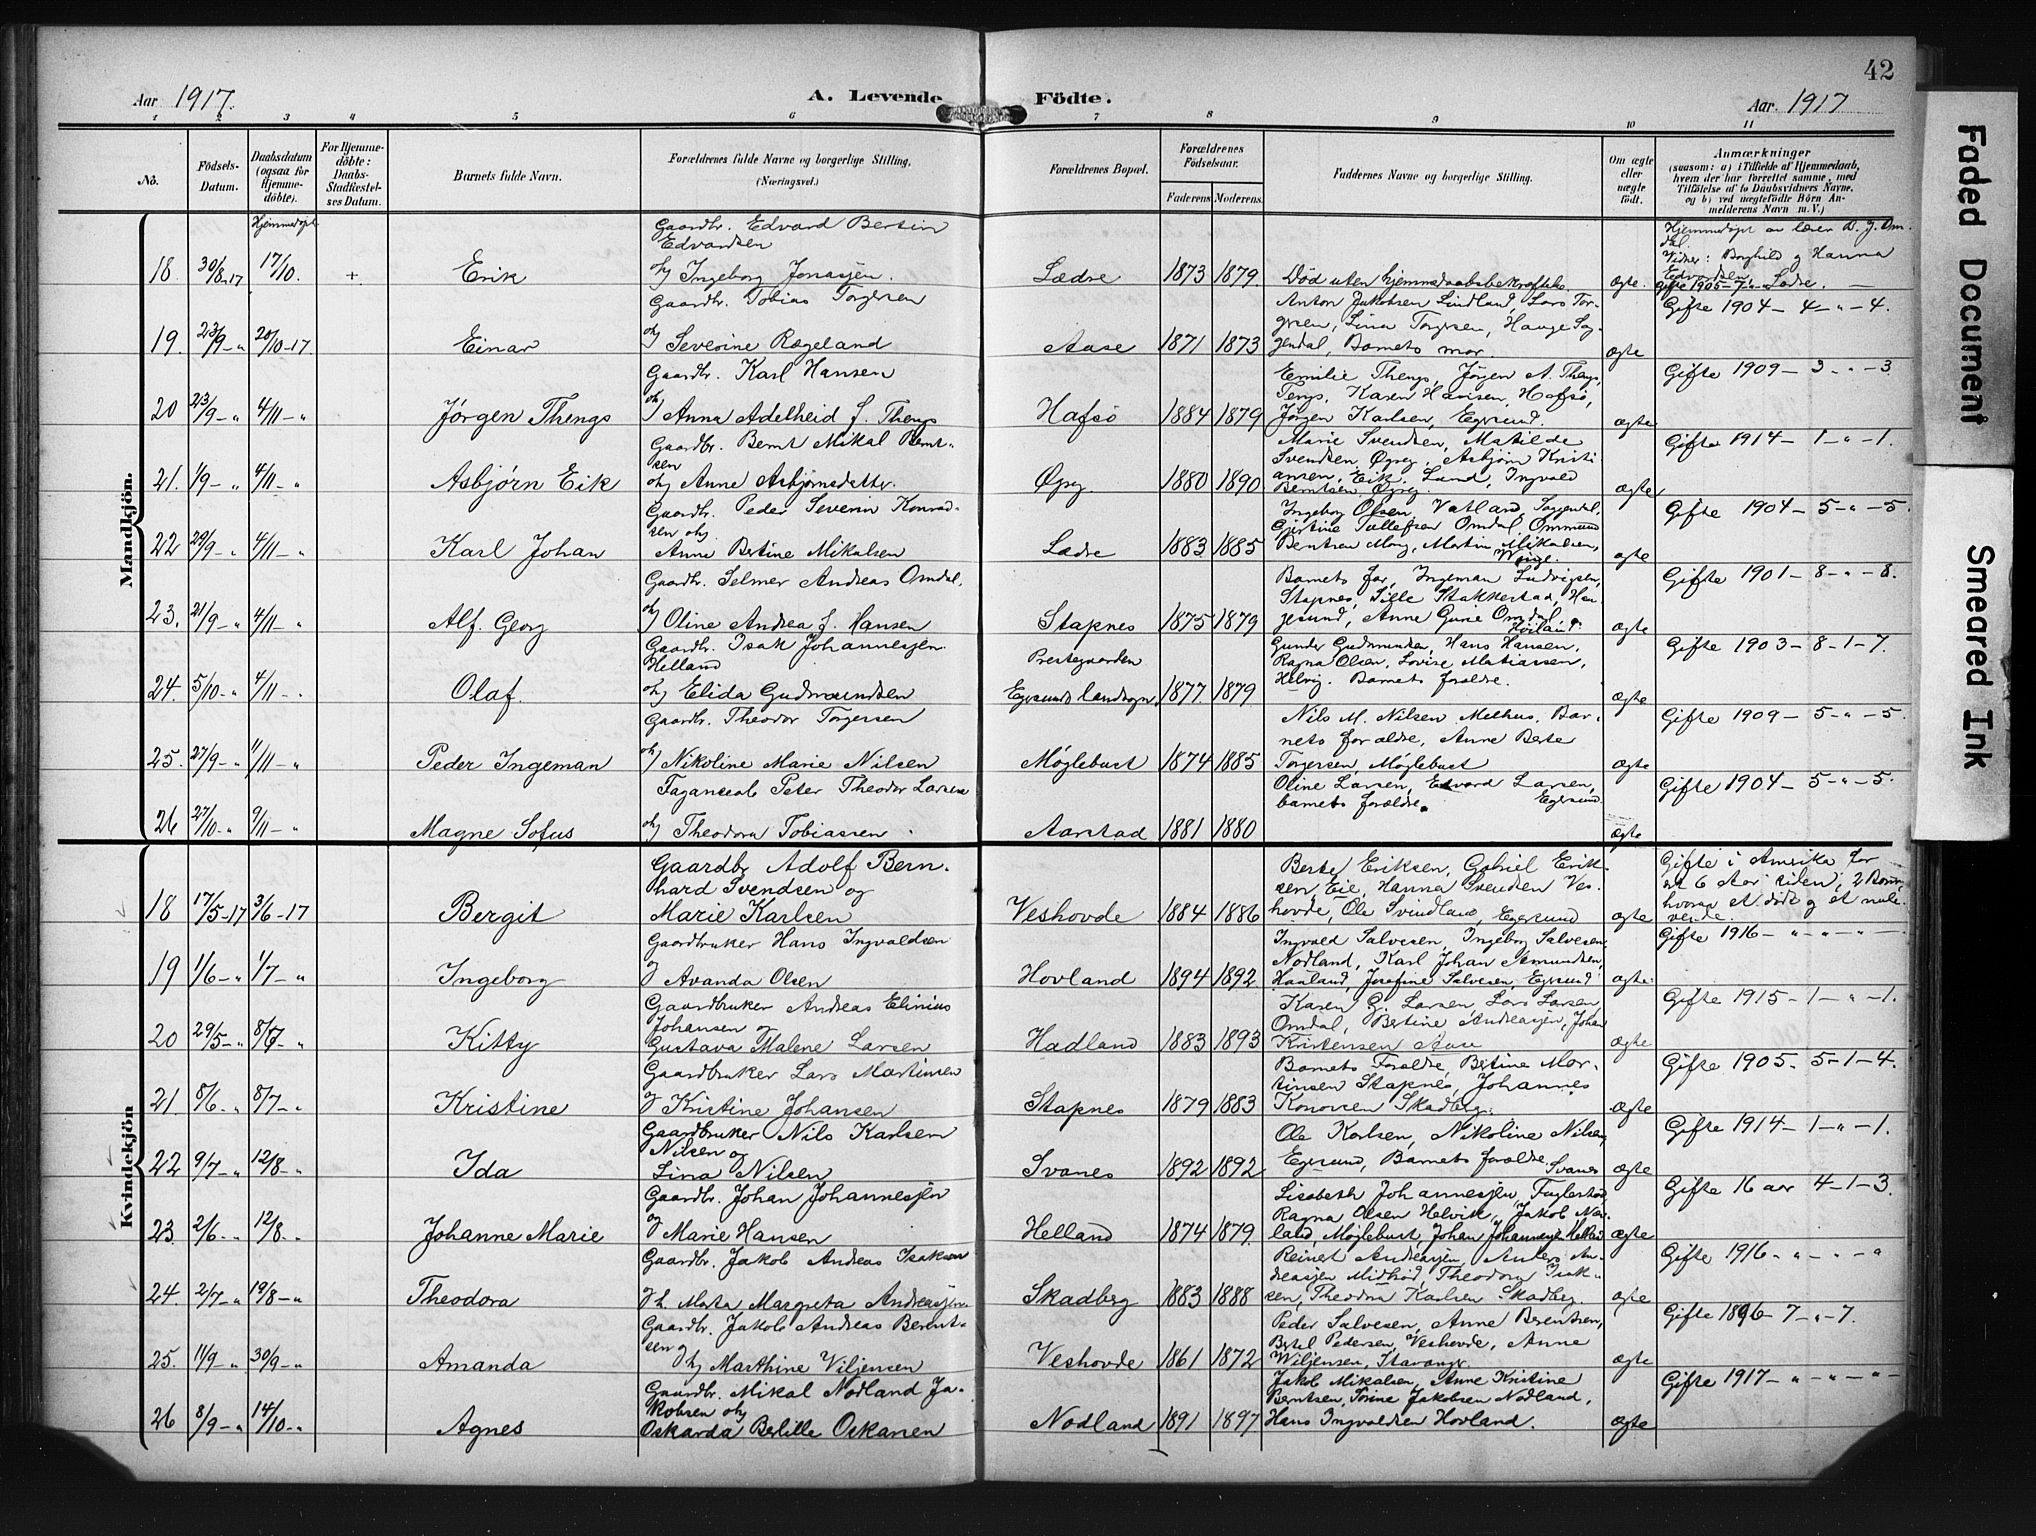 42
Aar 1917.
A. Levende Födte.
Aar. 1917
1 2 3 4 5 6 7 8 9 10 11
No.
Födsels-Datum.
Daabsdatum (ogsaa for Hjemme-döbte).
For Hjemme-döbte: Daabs-Stadfæstel-ses Datum.
Barnets fulde Navn.
Forældrenes fulde Navne og borgerlige Stilling. (Næringsvei.)
Forældrenes Bopæl.
Forældrenes Födselsaar.
Faderens Moderens
Faddernes Navne og borgerlige Stilling.
Om ægte eller uægte födt.
Anmærkninger
(saasom: a) i Tilfælde af Hjemmedaab, hvem der har forrettet samme, med Tilföielse af to Daabsvidners Navne, og b) ved uægtefödte Börn An-melderens Navn m. V.)
Mandkjön.
Hjemmedøpt
18. 30/8-17 17/10. + Erik
Gaardbr. Edvard Bertin
Edvardsen
og Ingeborg Jonassen.
Lædre 1873 1879
Død uten hjemmedaabsbekræftelse. ægte.
Hjemmedøpt av lærer
Vidner: Borghild og Hanna
Edvardsen Lædre.
Gifte 1905-7
19. 23/9-" 20/10-17. Einar
Gaardbr. Tobias Torgersen
og Severine Rægeland
Aase 1871 1873
Anton Jakobsen Lindland, Lars Tor-
gersen, Lina Torgersen, Hauge Sog-
gendal, Barnets mor. ægte
Gifte 1904 - 4 - " - 4.
20 23/9-" 4/11-" Jørgen Thengs
Gaardbr. Karl Hansen
og Anna Adelheid f. Thengs
Hafsø 1884 1879
Emilie Thengs, Jørgen A. Thengs,
Tengs, Karen Hansen, Hafsø,
Jørgen Karlsen, Egersund. ægte
Gifte 1909 - 3 - " - 3
21. 1/9-" 4/11-" Asbjørn Eik
Gaardbr. Bernt Mikal Bernt-
sen
og Anne Asbjørnsdatter.
Øgrey 1880 1890
Marie Svendsen, Matilde
Svendsen Øgrey, Asbjørn Kristi
ansen, Eik, Lund, Ingvald
Berntsen Øgrey. ægte
Gifte 1914 - 1 - " - 1.
22 29/9-" 4/11-" Karl Johan
Gaardbr. Peder Severin Konrad-
sen og
Anne Bertine Mikalsen
Lædre 1883 1885
Ingeborg Olsen, Vatland, Soggendal,
Gjertine Tollefsen Omdal, Ommund
Bentsen Mong, Martin Mikalsen, ægte
Gifte 1904 - 5 - " - 5.
23. 21/9-" 4/11-" Alf. Georg
Gaardbr. Selmer Andreas Omdal.
og Oline Andrea f. Hansen
Stapnes 1875 1879
Barnets far, Ingeman Ludvigsen,
Stapnes, Sille Stakkestad Hau-
gesund, Anne Gurie Omdal ægte
Gifte 1901 - 8 - " - 8.
24. 5/10-" 4/11-" Olaf.
Gaardbr. Isak Johannessen.
Helland
og Elida Gudmundsen
Prestegaarden
Egersunds landsogn 1877. 1879
Gunder Gudmunsen, Hans Hansen,
Ragna Olsen, Lovise Matiassen,
Helvig. Barnets foraldre. ægte
Gifte 1903 - 8 - 1 - 7.
25. 27/9-" 11/11-" Peder Ingeman
Gaardbr. Theodor Torgersen
og Nikoline Marie Nilsen
Møglebust 1874 1885
Nils M. Nilsen Melhus, Bar-
nets foraldre, Anne Berte
Torgersen Møglebust ægte
Gifte 1909 - 5 - " - 5.
26 27/10-" 9/11-" Magne Sofus
Peter Theodor Larsen
og Theodora Tobiassen
Aarstad 1881 1880
Oline Larsen, Edvard Larsen,
barnets foraldre. Egersund. ægte
Gifte 1904 - 5 - " - 5.
Kvindekjön
18 17/5-17 3/6-17 Bergit
Gaardbr Adolf Bern-
hard Svendsen og
Marie Karlsen
Veshovde 1884 1886
Berte Eriksen, Gabriel Erik-
sen, Eie, Hanna Svendsen Ves-
hovde, Ole Svindland Egersund ægte
Gifte i Amerika for
ca 6 Aar siden, 2 Barn
hvorav et dødt og et nule-
vende.
19 1/6-" 1/7-" Ingeborg
Gaardbruker Hans Ingvaldsen
og Avanda Olsen
Hovland 1894 1892
Ingvald Salvesen, Ingeborg Salvesen
Nodland, Karl Johan
Haaland, Josefine Salvesen, Egersund ægte.
Gifte 1916 - " - " - " -
20 29/5-" 8/7-" Kitty
Gaardbruker Andreas Elinius
Johansen og
Gustava Malene Larsen
Hadland 1883 1893
Karen G. Larsen, Lars Larsen,
Omdal, Bertine Andreassen, Johan
Kristensen Aase ægte
Gifte 1915 - 1 - " - 1.
21. 8/6-" 8/7-" Kristine
Gaardbruker Lars Martinsen
og Kristine Johansen
Stapnes 1879 1883
Barnets Foraldre, Bertine Mar-
tinsen Stapnes, Johannes
Konorsen Skadberg. ægte
Gifte 1905. 5 - 1 - 4.
22 9/7-" 12/8-" Ida
Gaardbruker Nils Karlsen
Nilsen og
Lina Nilsen
Svanes 1892 1892
Ole Karlsen, Nikoline Nilsen,
Egersund, Barnets foraldre Svanes ægte
Gifte 1914 - 1 - " - 1.
23. 2/6-" 12/8-" Johanne Marie
Gaardbr. Johan Johannessen
og Marie Hansen
Helland 1874 1879.
Lisabeth Johannessen, Fuglestad,
Ragna Olsen Helvik, Jakob Nær-
land, Møglebust, Johan Johannessen Helland ægte
Gifte 16 aar 4 - 1 - 3.
24. 2/7-" 19/8-" Theodora
Gaardbr. Jakob Andreas Isaksen
og h. Marta Margreta Andreassen
Skadberg 1883 1888
Reinert Andreassen, Anders An-
dreassen Midbød, Theodora Isak-
sen, Theodora Karlsen Skadberg. ægte
Gifte 1916 - " - " - "
25. 11/9-" 30/9-" Amanda
Gaardbr. Jakob Andreas Berent-
sen
og Marthine Viljensen
Veshovde 1861 1872
Peder Salvesen, Anne Berentsen,
Bertel Pedersen, Veshovde, Anne
Wiljensen, Stavanger. ægte
Gifte 1896 - 7 - " - 7.
26 8/9-" 14/10-" Agnes
Gaardbr. Mikal Nodland Ja-
kobsen og
Oskarda Berlille Oskarsen
Nodland 1891 1897
Jakob Mikalsen, Anne Kristine
Berntsen, Torine Jakobsen Nodland,
Hans Ingvaldsen Hovland. ægte
Gifte 1917 - " - " - " -
Faded Document
Smeared Ink